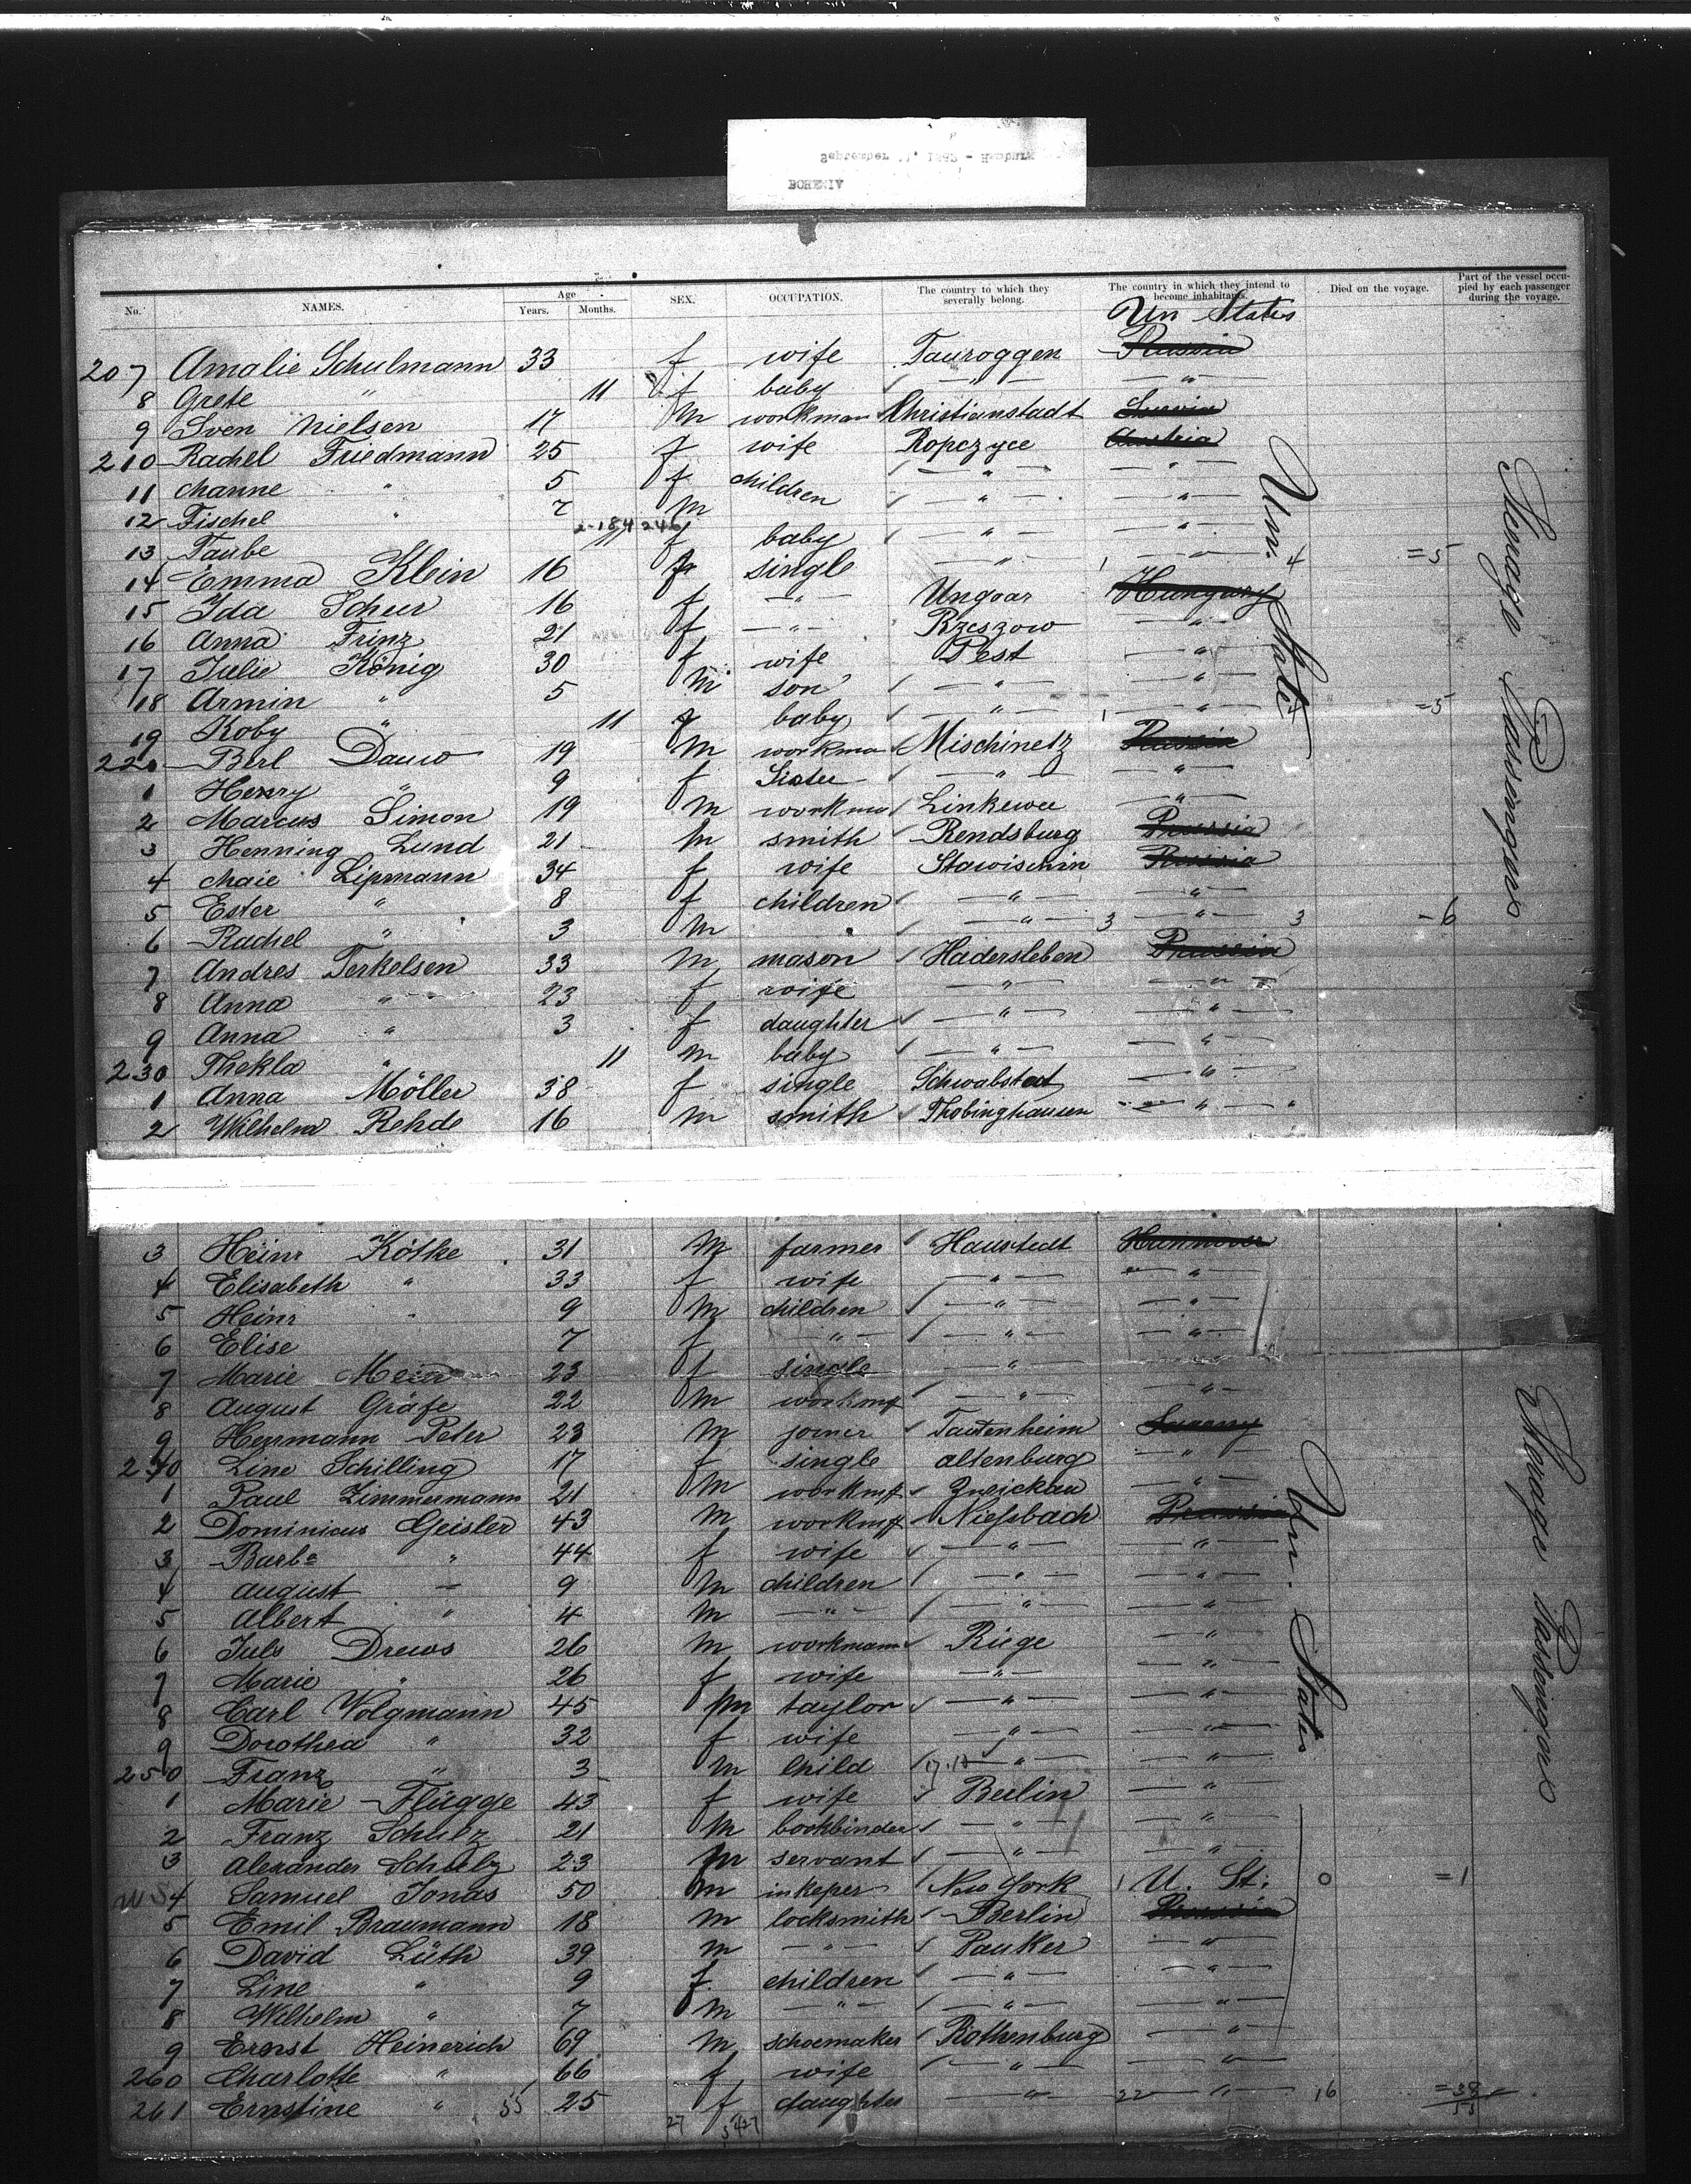 BOHEMIA
No. NAMES. Age Years. Months. SEX. OCCUPATION. The country to which they severally belong. The country in which they intend to become inhabitants. Died on the voyage. Part of the vessel occupied by each passenger during the voyage.
Un States
207 Amalie Schulmann 33 f wife Tauroggen Russia
8 Grete " 11 f baby — " — — " —
9 Sven Nielsen 17 m workman Christianstadt
210 Rachel Friedmann 25 f wife Ropczyce Austria
11 Channe " 5 f children — " — — " —
12 Fischel " m — " — — " —
13 Taube 11 f baby — " — — " —
14 Emma Klein 16 single — " — — " — 4 =5
15 Ida Scheer 16 f — " — Ungvar Hungary
16 Anna Prinz 21 f — " — Rzeszow — " —
17 Julie König 30 f wife Pest — " —
18 Armin " 5 m son — " — — " —
19 Koby " 11 baby — " — — " — =5
220 Berl Dauw 19 m workma Mischinetz Russia
1 Henry " 9 f Sister — " — — " —
2 Marcus Simon 19 m workma Linkewee — " —
3 Henning Lund 21 m smith Rendsburg Prussia
4 Chaie Lipmann 34 f wife Stawischin Russia
5 Ester " 8 f children — " — — " —
6 Rachel " 3 m — " — 3 — " — 3 =6
7 Andres Terkelsen 33 m mason Hadersleben Prussia
8 Anna " 23 f wife — " — — " —
9 Anna " 3 f daughter — " — — " —
230 Thekla " 11 m baby — " — — " —
1 Anna Möller 38 f single Schwabstedt — " —
2 Wilhelm Rehde 16 m smith Thobinghausen — " —
Un. States
3 Heinr Köthe 31 m farmer Haustedt Hannover
4 Elisabeth " 33 f wife — " — — " —
5 Heinr 9 m children — " — — " —
6 Elise 7 f — " — — " — — " —
7 Marie Meier 23 f single — " —
8 August Gräfe 22 m workmn — " — — " —
9 Herrmann Peter 23 m joiner Tautenheim Saxony
240 Line Schilling 17 f single Altenburg — " —
1 Paul Zimmermann 21 m workmn Zwickau — " —
2 Dominicus Geisler 43 m workmn Niessbach Prussia
3 Barbe " 44 f wife — " — — " —
4 August — 9 m children — " — — " —
5 Albert " 4 m — " — — " — — " —
6 Juls Drews 26 m workmann Riege — " —
7 Marie " 26 f wife — " — — " —
8 Carl Wolgmann 45 m taylor — " — — " —
9 Dorothea " 32 f wife — " — — " —
250 Franz " 3 m Child — " — — " —
1 Marie Flügge 43 f wife Berlin — " —
2 Franz Schulz 21 m bookbinder — " — — " —
3 Alexander Schulz 23 m servant — " — — " —
4 Samuel Jonas 50 m inkeper New York 1 U. St. 0 =1
5 Emil Braumann 18 m locksmith Berlin Prussia
6 David Lüth 39 m — " — Panker — " —
7 Line " 9 f children — " — — " —
8 Wilhelm " 7 m — " — — " — — " —
9 Ernst Heinerich 69 m schoemaker Rothenburg — " —
260 Charlotte " 66 f wife — " — — " —
261 Ernstine " 55 25 f daughter — " — 22 — " — 16 =38
Un. States